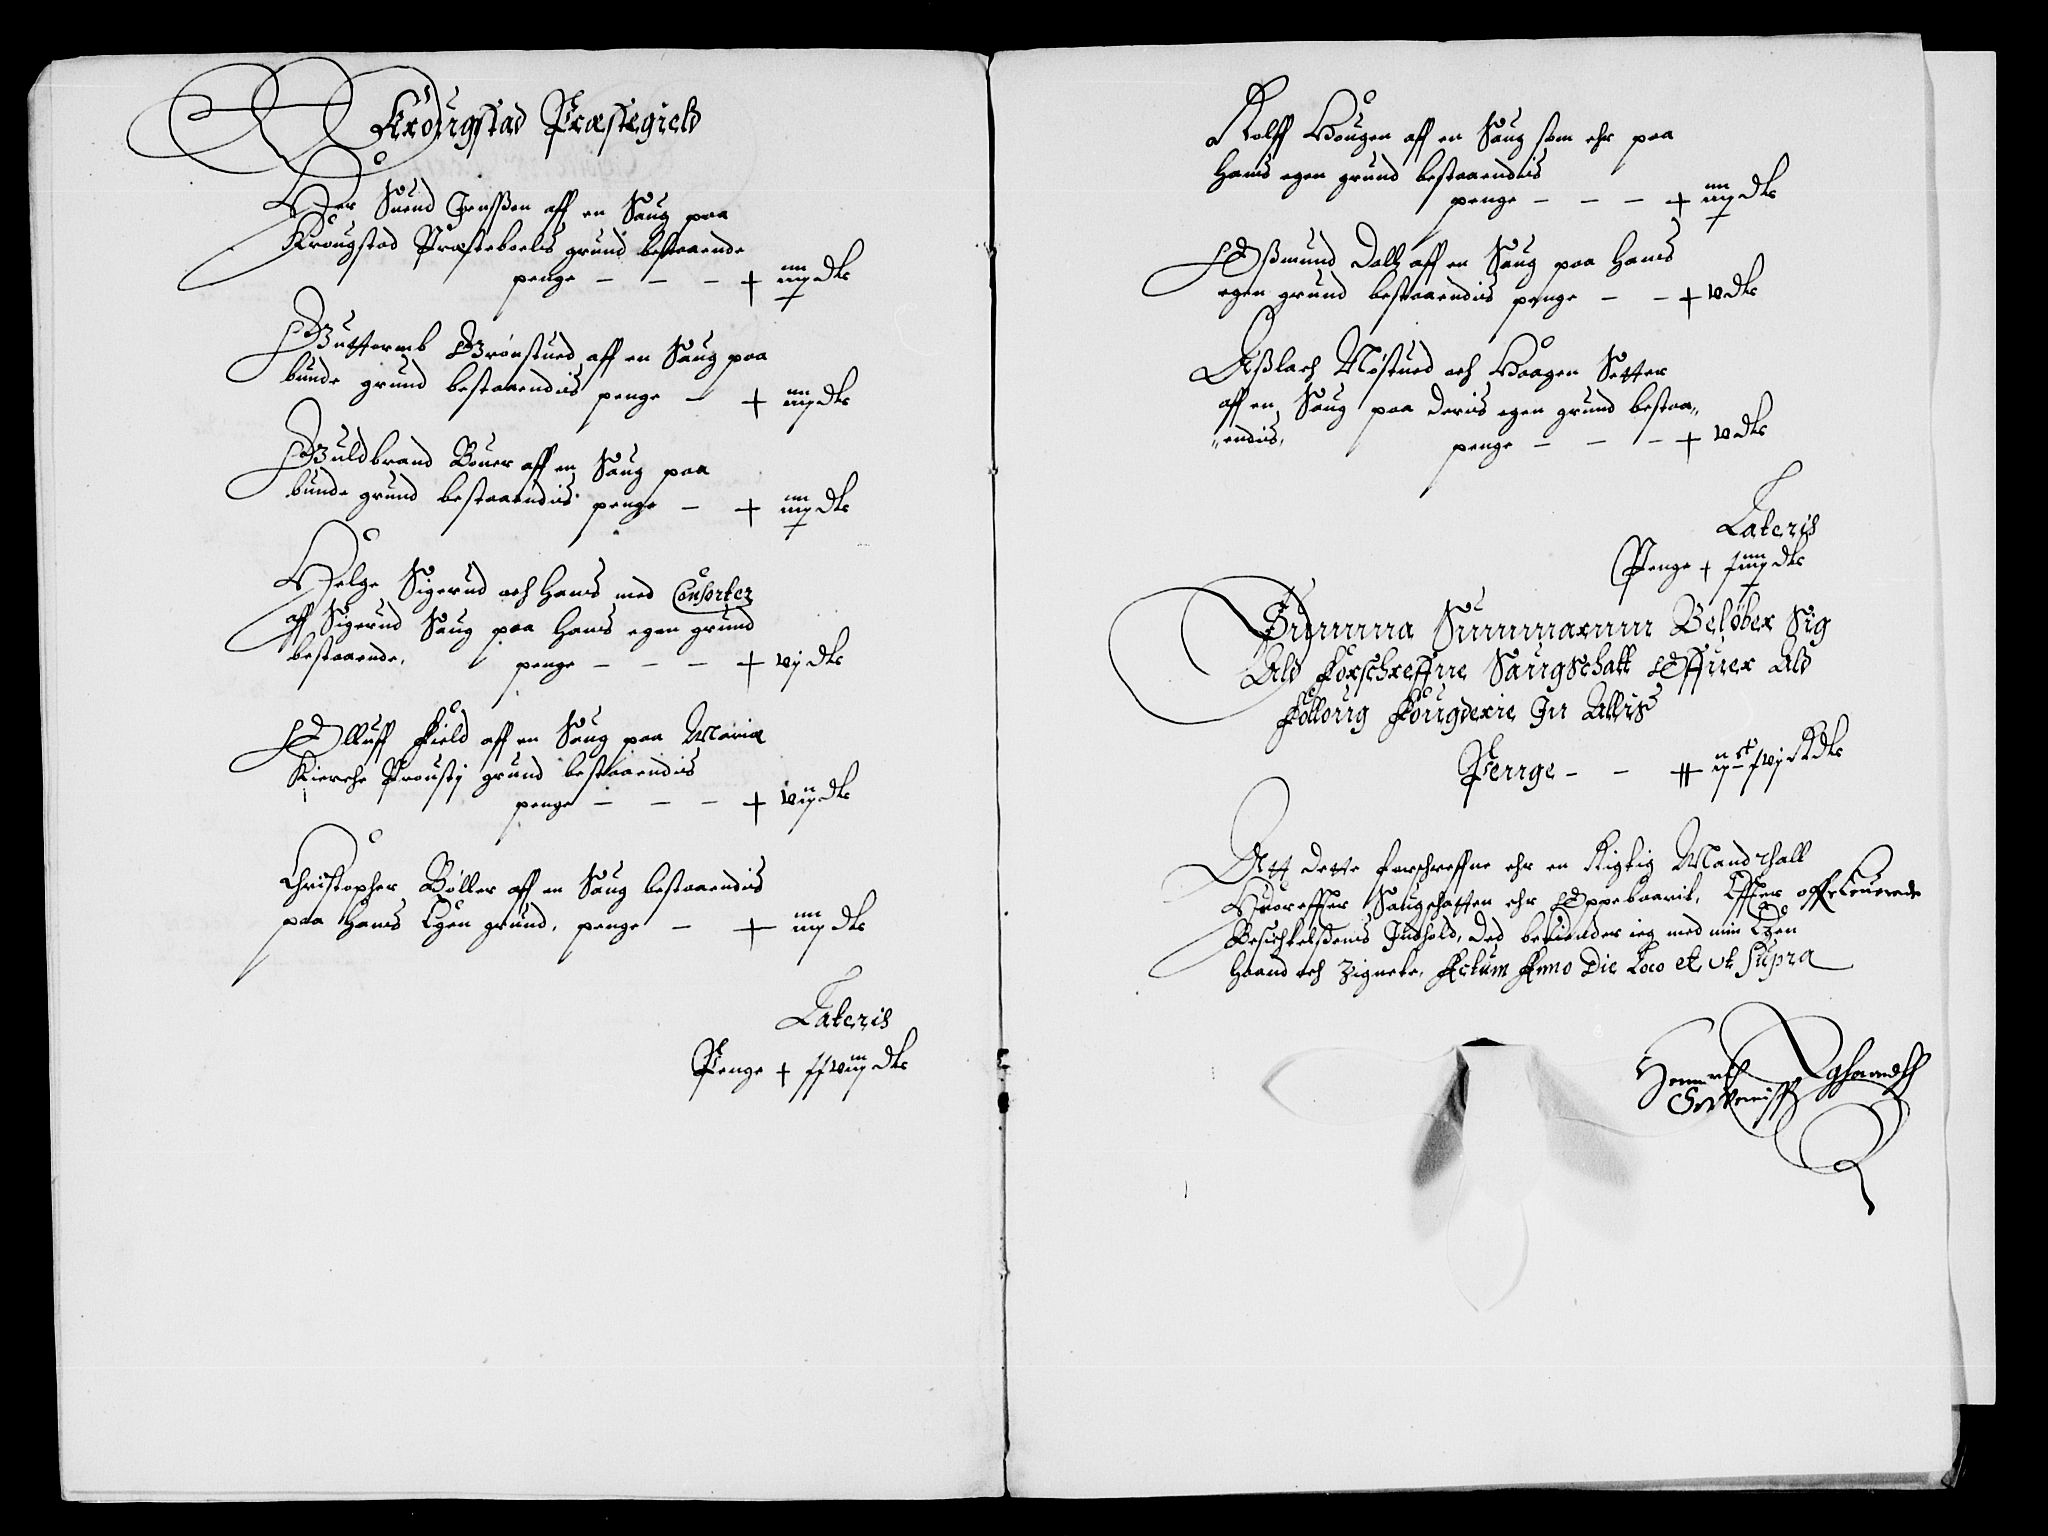 Krougstad Præstegield
Her Suend Jenssen aff en Saug paa
Krougstad Præsteboelis grund bestaaende
penge — — — + iiij Dlr
Guttormb Grönstued aff en Saug paa
bunde grund bestaaendis penge — + iiij Dlr
Guldbrand Bouer aff en Saug paa
bunde grund bestaaendis penge — + iiij Dlr
Helge Sigerud och Hans med Consorter
aff Sigerud Saug paa Hans egen grund
bestaaende, penge — — — + vj Dlr
Olluff Field aff en Saug paa Mariæ
Kierche Proustj grund bestaaendis
penge — — — + vij Dlr
Christopher Böller aff en Saug bestaaendis
paa Hans Egen grund, penge — + iiij Dlr
Lateris
Penge +
Rolff Hougen aff en Saug som ehr paa
Hans egen grund bestaaendis
penge — — — + iiij Dlr
Oßmund Dall aff en Saug paa Hans
egen grund bestaaendis penge — — + v Dlr
Aßlach Nöstued och Haagen Setter
aff en Saug paa deris egen grund bestaa„
„endis, penge — — — + v Dlr
Lateris
Penge + xiiij Dlr
Summa Summarum Belöber Sig
Ald Forschreffne Saugschatt Offuer Ald
Folloug Fougderie In Allis
Penge — —
Att dette forschreffne ehr en Rigtig Mandthall
Huoreffter Saugschatten ehr Oppebaarit, Effter offrleuerede
Besichtelßens Indhold, ded bekiender ieg med min Egen
Haand och Zignete, Actum Anno Die Loco et ut Supra